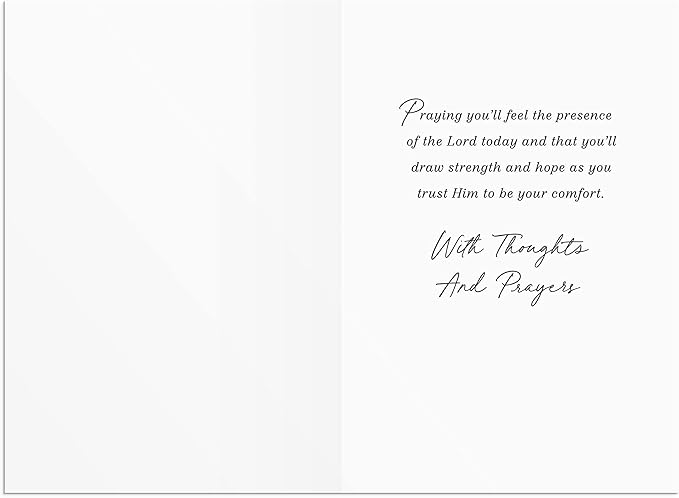 Praying you'll feel the presence
of the Lord today and that you'll
draw strength and hope as you
trust Him to be your comfort.
With Thoughts
And Prayers